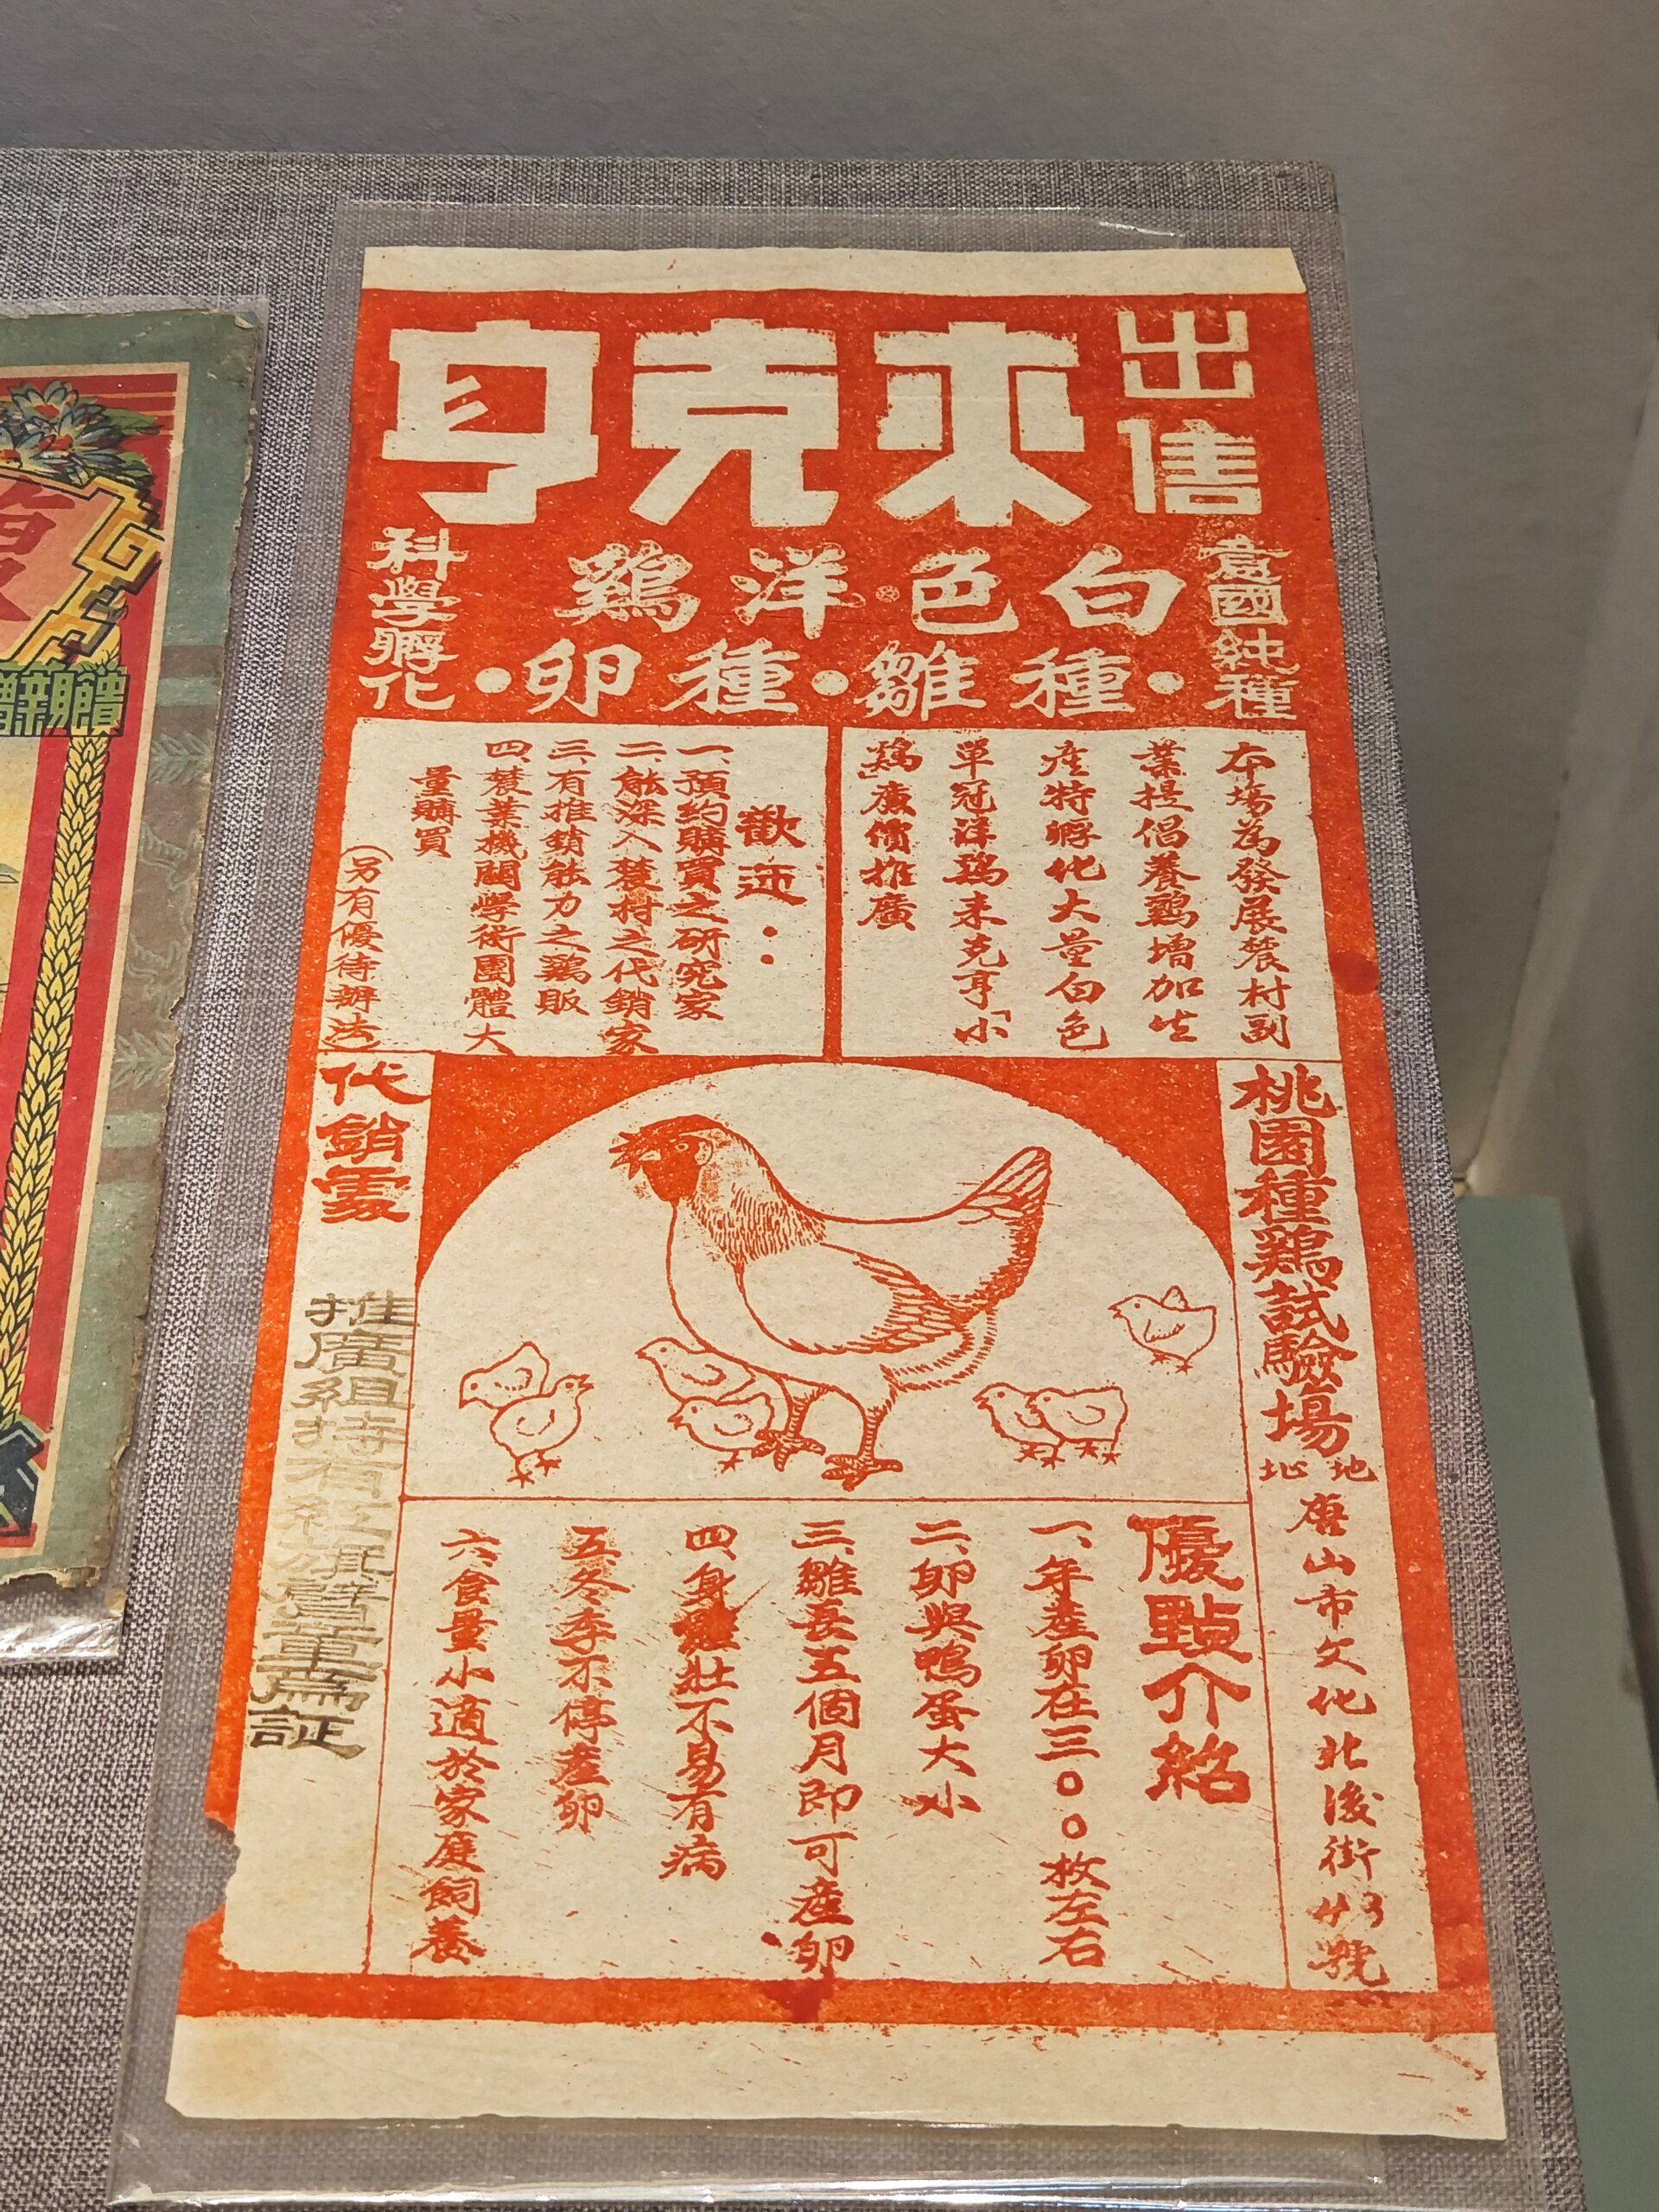 出售
來克亨
意國純種
白色洋鷄
·種雛·種卵·
科學孵化
本場為發展農村副
業提倡養鷄增加生
產特孵化大量白色
單冠洋鷄來克亨「小
鷄」廉價推廣
歡迎：
一、預約購買之研究家
二、能深入農村之代銷家
三、有推銷能力之鷄販
四、農業機關學術團體大
量購買
（另有優待辦法）
桃園種鷄試驗場
地址
唐山市文化北後街43號
代銷處
推廣組持有紅旗臂章為証
優點介紹
一、年產卵在三〇〇枚左右
二、卵與鴨蛋大小
三、雛長五個月即可產卵
四、身體壯不易有病
五、冬季不停產卵
六、食量小適於家庭飼養